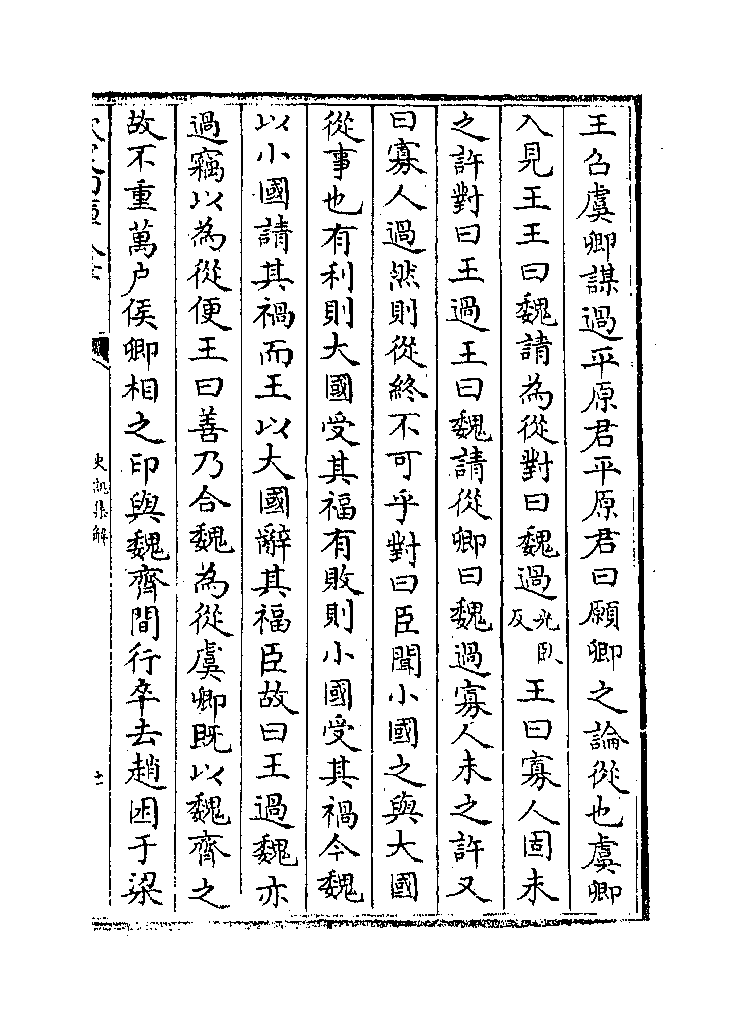 王召虞卿謀過平原君平原君曰願卿之論從也虞卿
入見王王曰魏請為從對曰魏過光卧反王曰寡人固未
之許對曰王過王曰魏請從卿曰魏過寡人未之許又
曰寡人過然則從終不可乎對曰臣聞小國之與大國
從事也有利則大國受其福有敗則小國受其禍今魏
以小國請其禍而王以大國辭其福臣故曰王過魏亦
過竊以為從便王曰善乃合魏為從虞卿既以魏齊之
故不重萬户侯卿相之印與魏齊間行卒去趙困于梁
史記集解